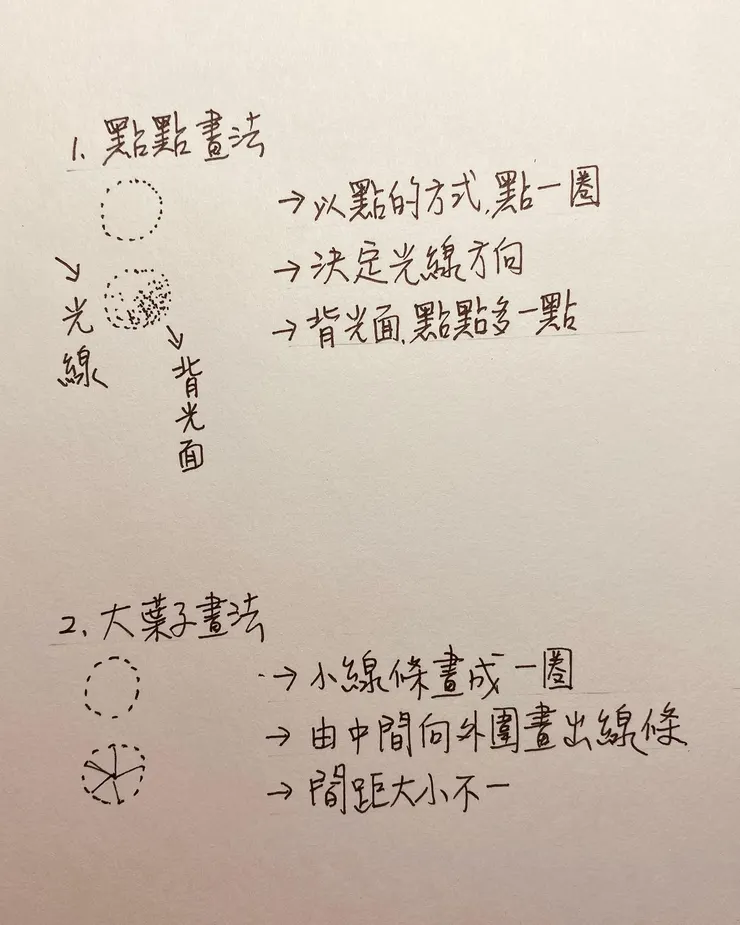 1. 點點畫法
→以點的方式,點一圈
→決定光線方向
→背光面,點點多一點
↘
光線
↘
背光面
2. 大葉子畫法
→小線條畫成一圈
→由中間向外圍畫出線條
→間距大小不一